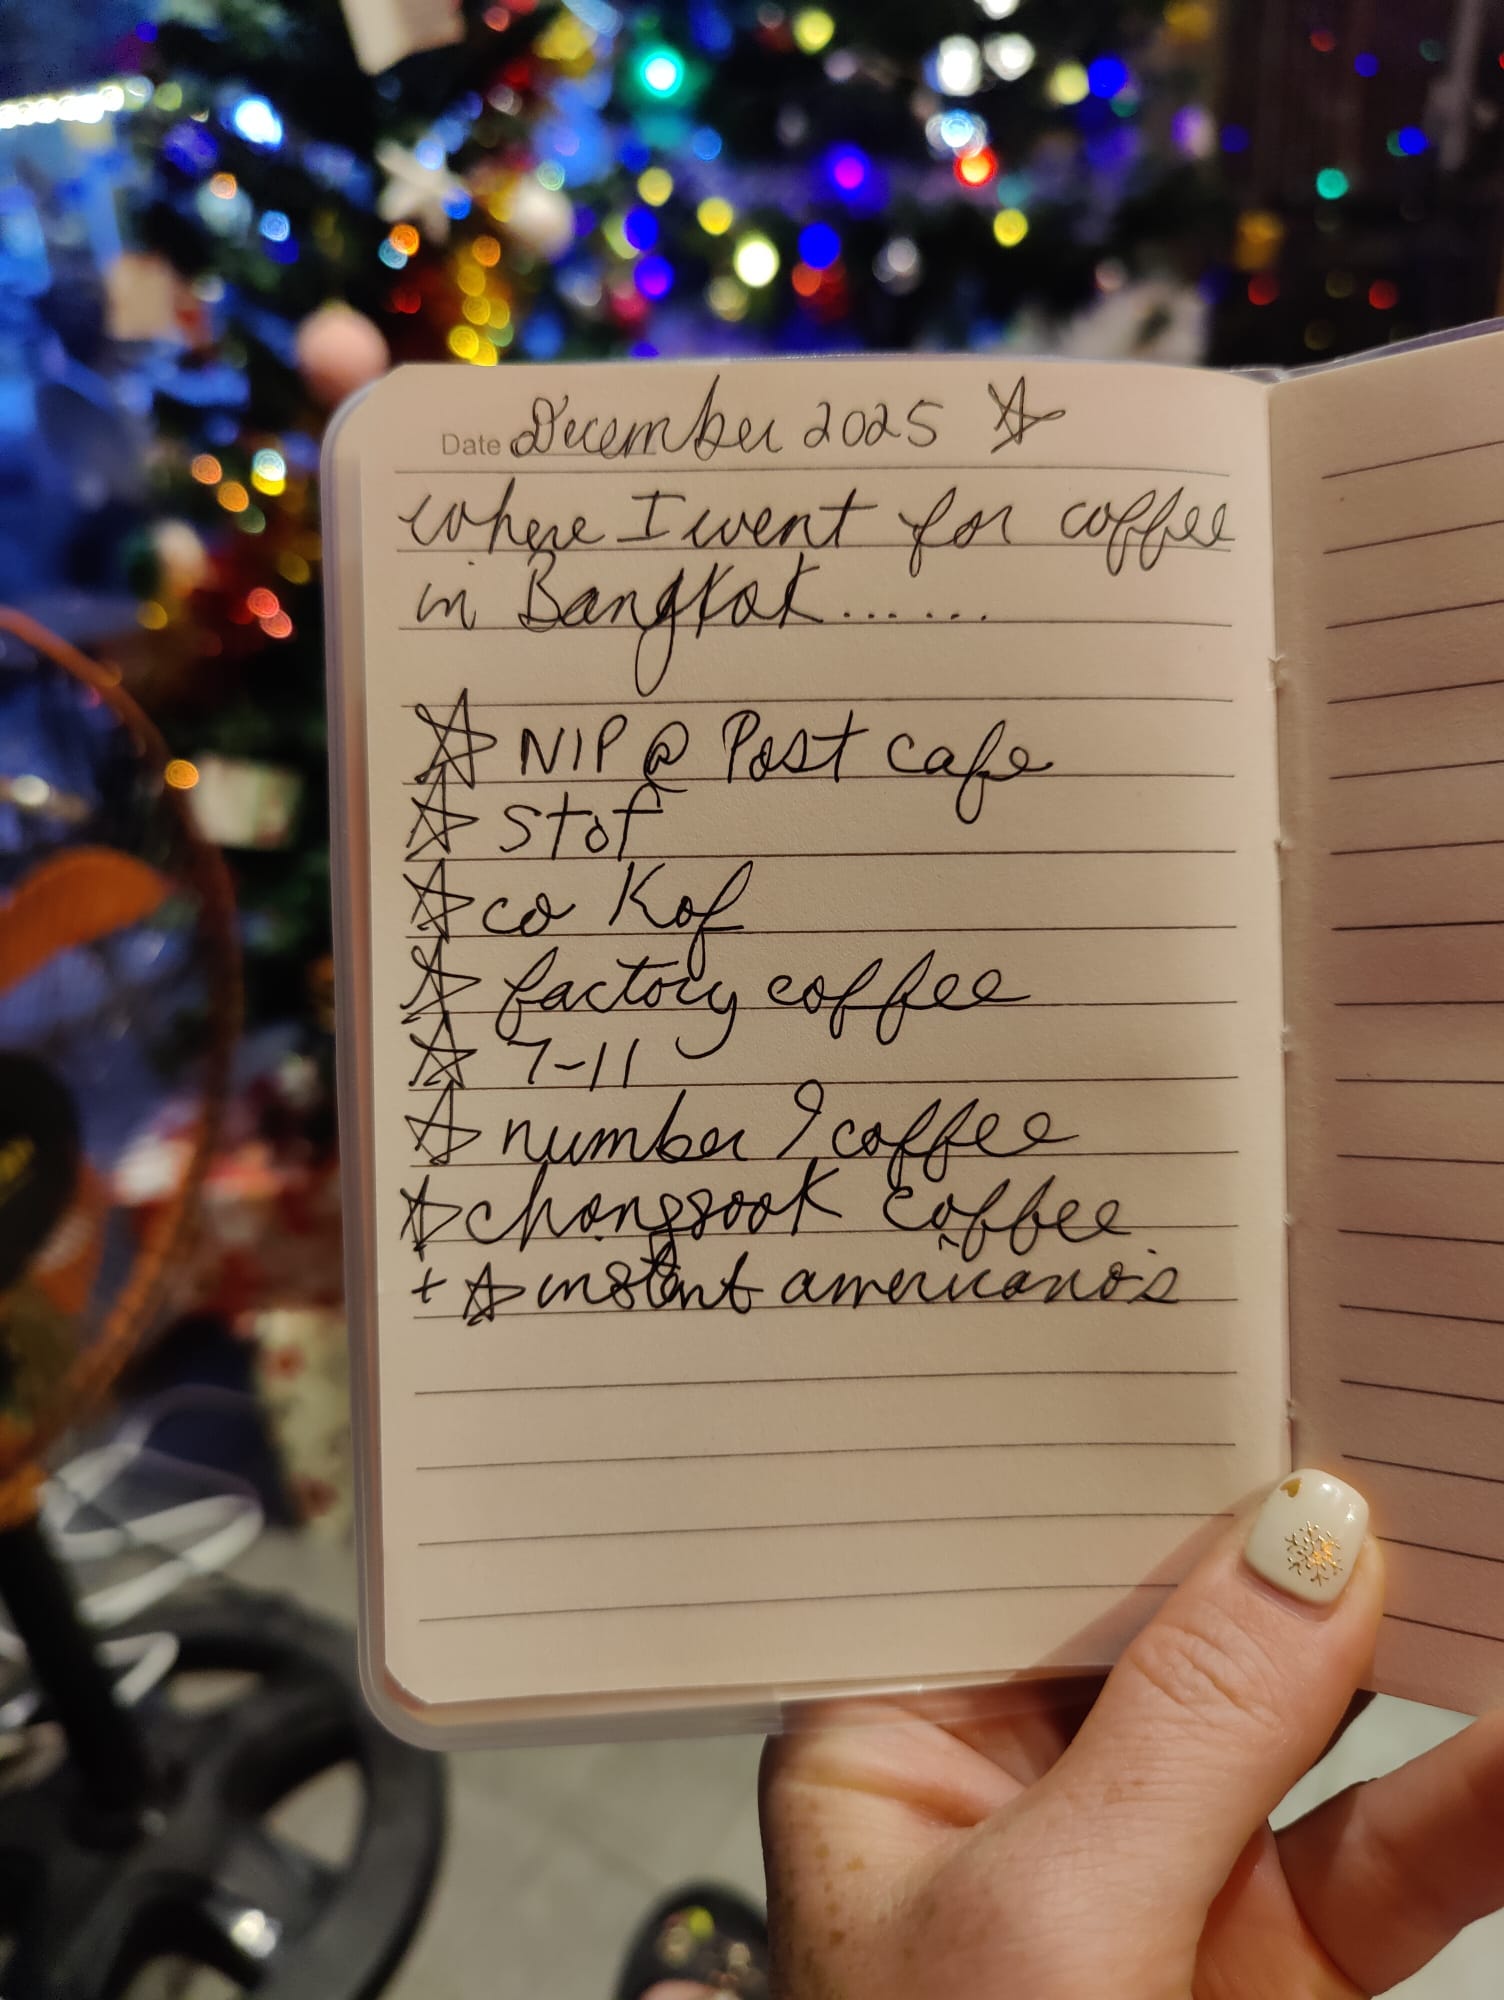 Date December 2025 ☆
where I went for coffee
in Bangkok.......
☆ NIP @ Post cafe
☆ Stof
☆ co Kof
☆ factory coffee
☆ 7-11
☆ number 9 coffee
☆ chongsook coffee
+ ☆ instant americano's